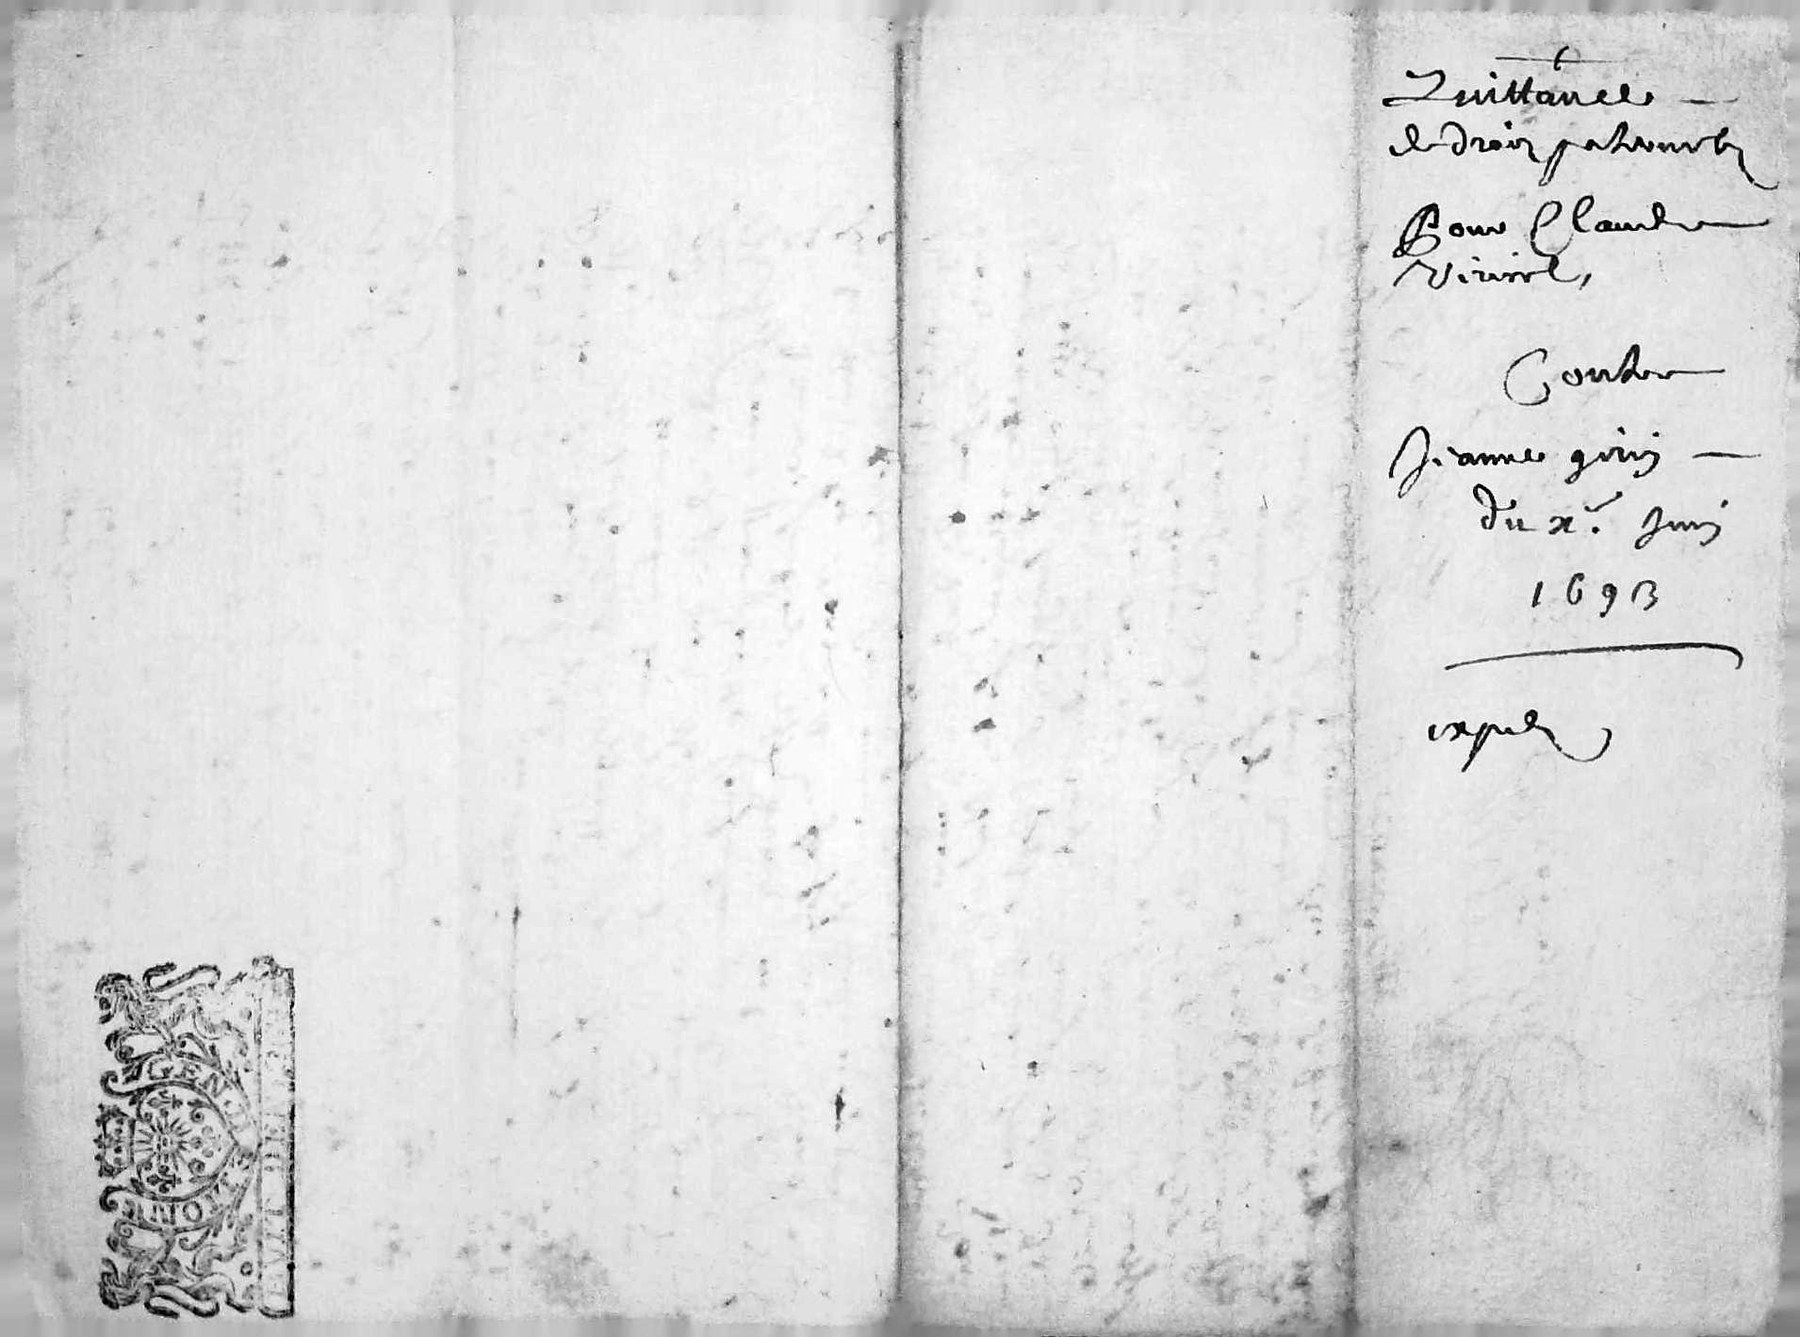 Quittance
de droiz paternelz
Pour Claude
Viriel,
Contre
Jeanne girin
du xe. Juin
1693
GEN. D
LION